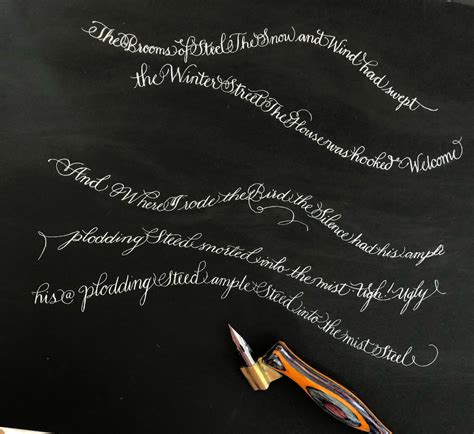 The Brooms of Steel The Snow and Wind had swept
the Winter Street The House was hooked Welcome
And Where I rode the Bird the Silence had his ample
plodding Steed snorted into the mist Ugh! Ugly
his @ plodding Steed ample Steed into the mist Steel